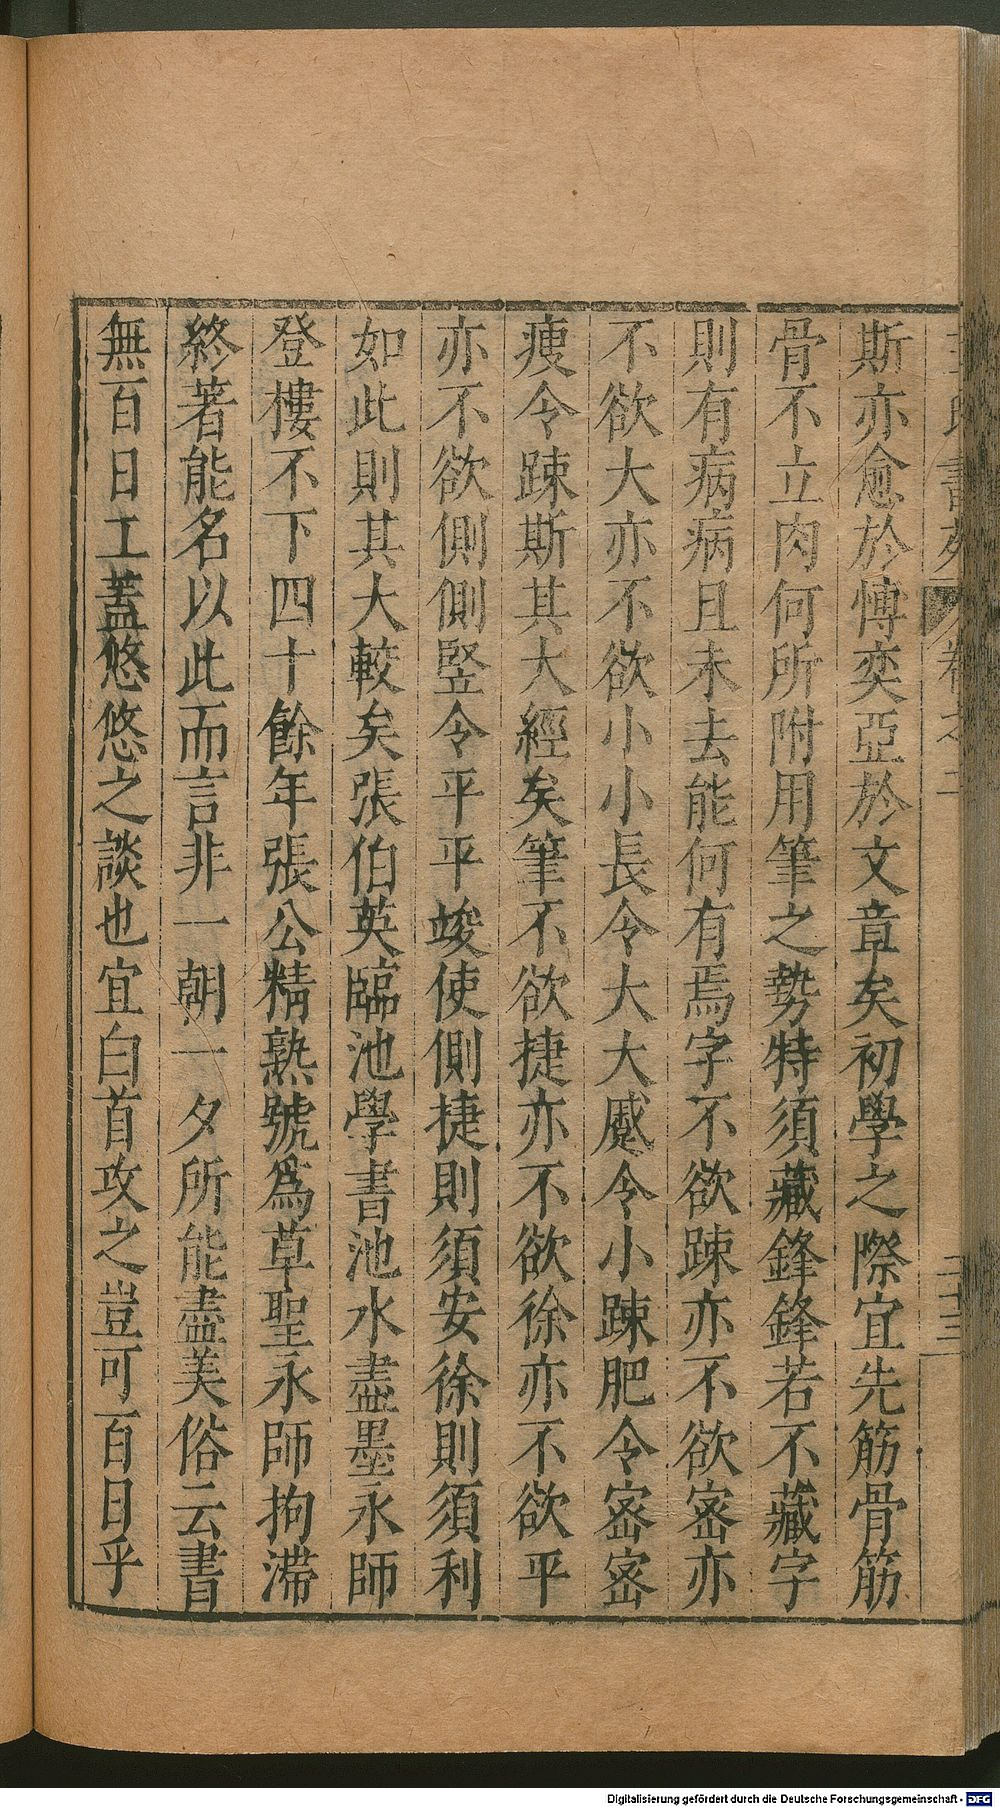 斯亦愈於愽奕亞於文章矣初學之際宜先筋骨筋
骨不立肉何所附用筆之勢特須藏鋒鋒若不藏字
則有病病且未去能何有焉字不欲踈亦不欲宻亦
不欲大亦不欲小小長令大大蹙令小踈肥令宻宻
瘦令踈斯其大經矣筆不欲捷亦不欲徐亦不欲平
亦不欲側側竪令平平竣使側捷則須安徐則須利
如此則其大較矣張伯英臨池學書池水盡墨永師
登樓不下四十餘年張公精熟號爲草聖永師拘滯
終著能名以此而言非一朝一夕所能盡美俗云書
無百日工蓋悠悠之談也宜白首攻之豈可百日乎
Digitalisierung gefördert durch die Deutsche Forschungsgemeinschaft - DFG